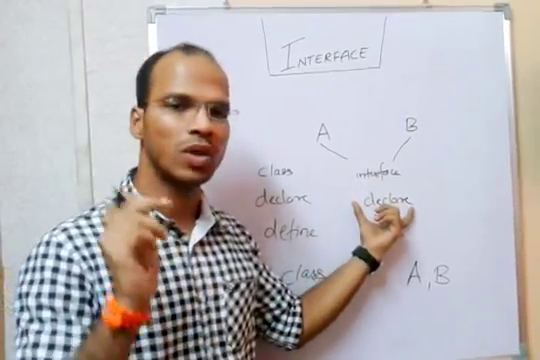 INTERFACE
A B
class interface
declare declare
define
class A,B